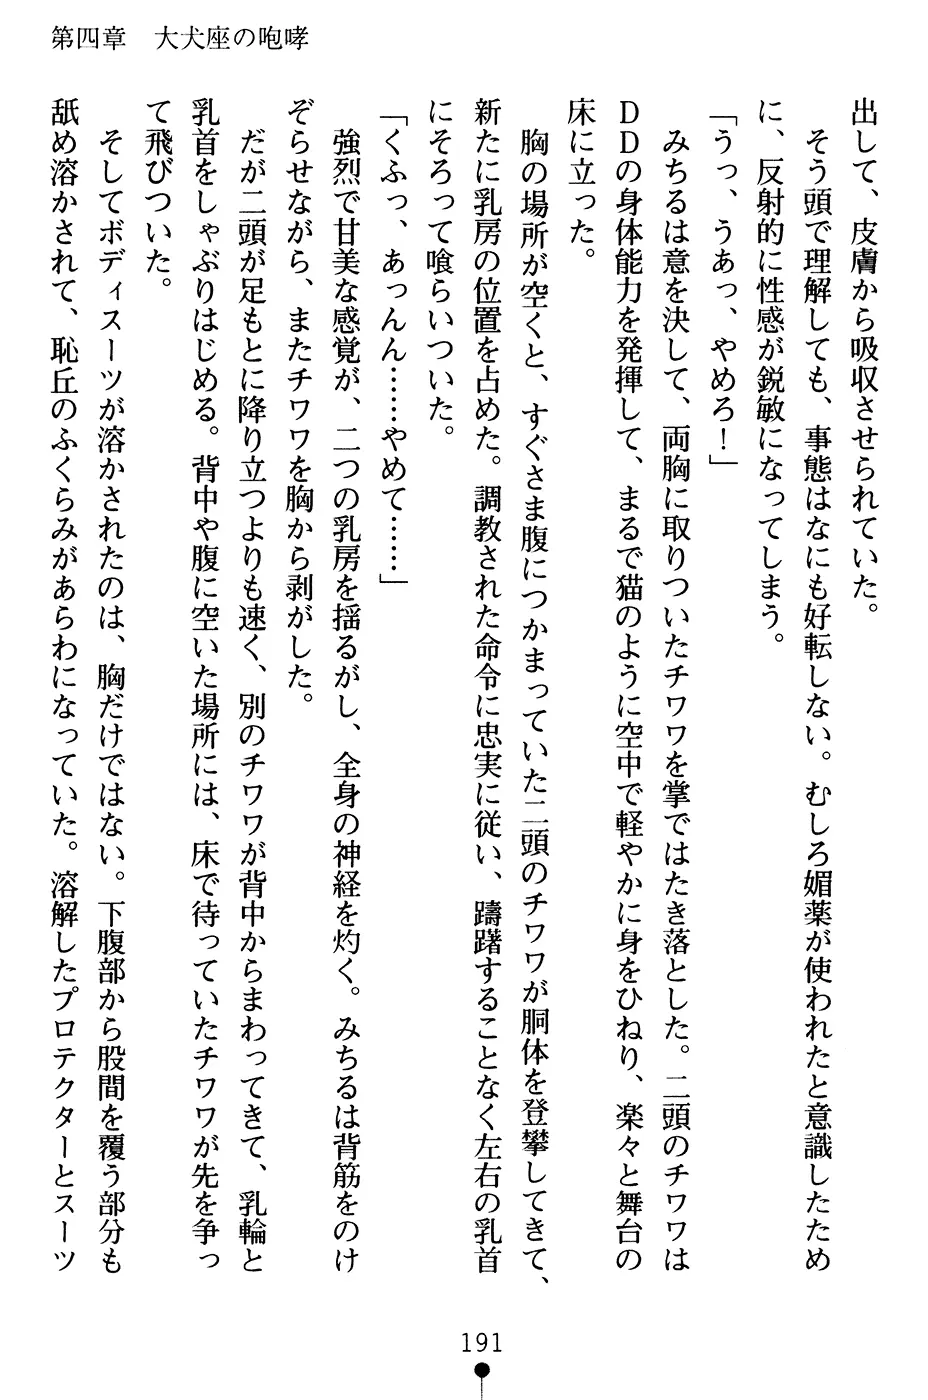 第四章　大犬座の咆哮
出して、皮膚から吸収させられていた。
そう頭で理解しても、事態はなにも好転しない。むしろ媚薬が使われたと意識したため
に、反射的に性感が鋭敏になってしまう。
「うっ、うあっ、やめろ！」
みちるは意を決して、両胸に取りついたチワワを掌ではたき落とした。二頭のチワワは
ＤＤの身体能力を発揮して、まるで猫のように空中で軽やかに身をひねり、楽々と舞台の
床に立った。
胸の場所が空くと、すぐさま腹につかまっていた二頭のチワワが胴体を登攀してきて、
新たに乳房の位置を占めた。調教された命令に忠実に従い、躊躇することなく左右の乳首
にそろって喰らいついた。
「くふっ、あっんん……やめて……」
強烈で甘美な感覚が、二つの乳房を揺るがし、全身の神経を灼く。みちるは背筋をのけ
ぞらせながら、またチワワを胸から剥がした。
だが二頭が足もとに降り立つよりも速く、別のチワワが背中からまわってきて、乳輪と
乳首をしゃぶりはじめる。背中や腹に空いた場所には、床で待っていたチワワが先を争っ
て飛びついた。
そしてボディスーツが溶かされたのは、胸だけではない。下腹部から股間を覆う部分も
舐め溶かされて、恥丘のふくらみがあらわになっていた。溶解したプロテクターとスーツ
191